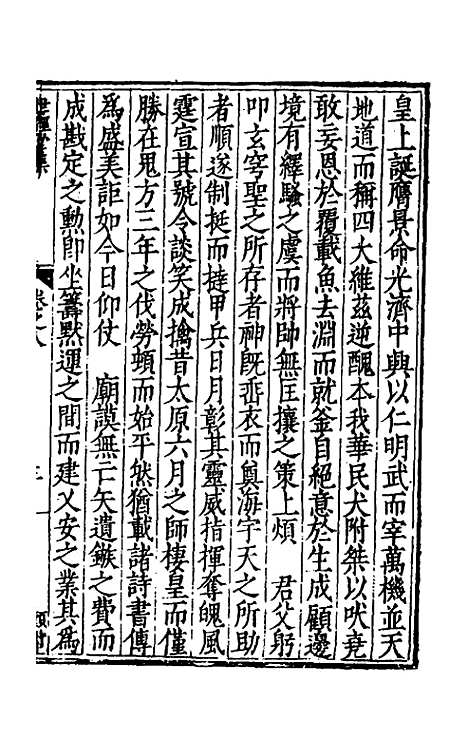 皇上誕膺景命光濟中興以仁明武而宰萬機並天
地道而稱四大維茲逆醜本我華民犬附桀以吠堯
敢妄恩於覆載魚去淵而就釜自絕意於生成顧邊
境有繹騷之虞而將帥無匡攘之策上煩　君父躬
叩玄穹聖之所存者神既垂衣而奠海宇天之所助
者順遂制挺而撻甲兵日月彰其靈威指揮奪魄風
霆宣其號令談笑成擒昔太原六月之師棲皇而僅
勝在鬼方三年之伐勞頓而始平然猶載諸詩書傳
為盛美詎如今日仰仗　廟謨無亡矢遺鏃之費而
成戡定之勲即坐籌默運之間而建乂安之業其為
卷之八